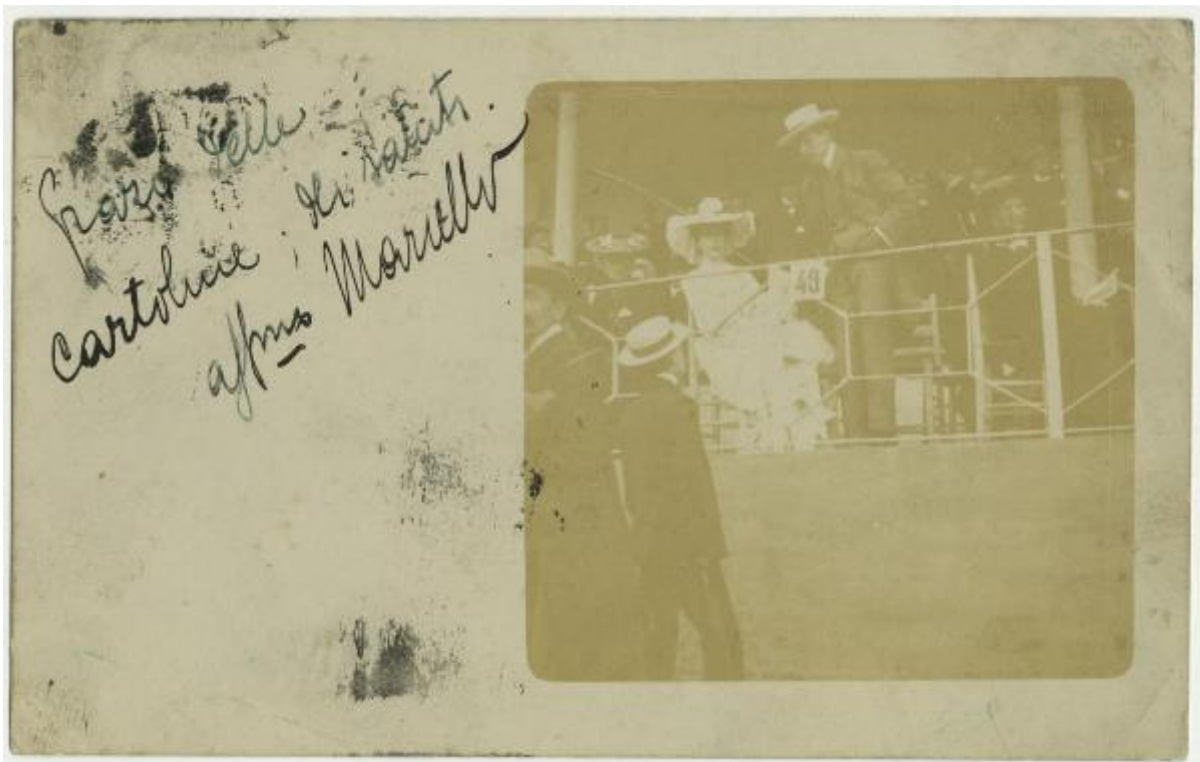 Grazie delle
cartoline ; saluti.
affmo Marcello